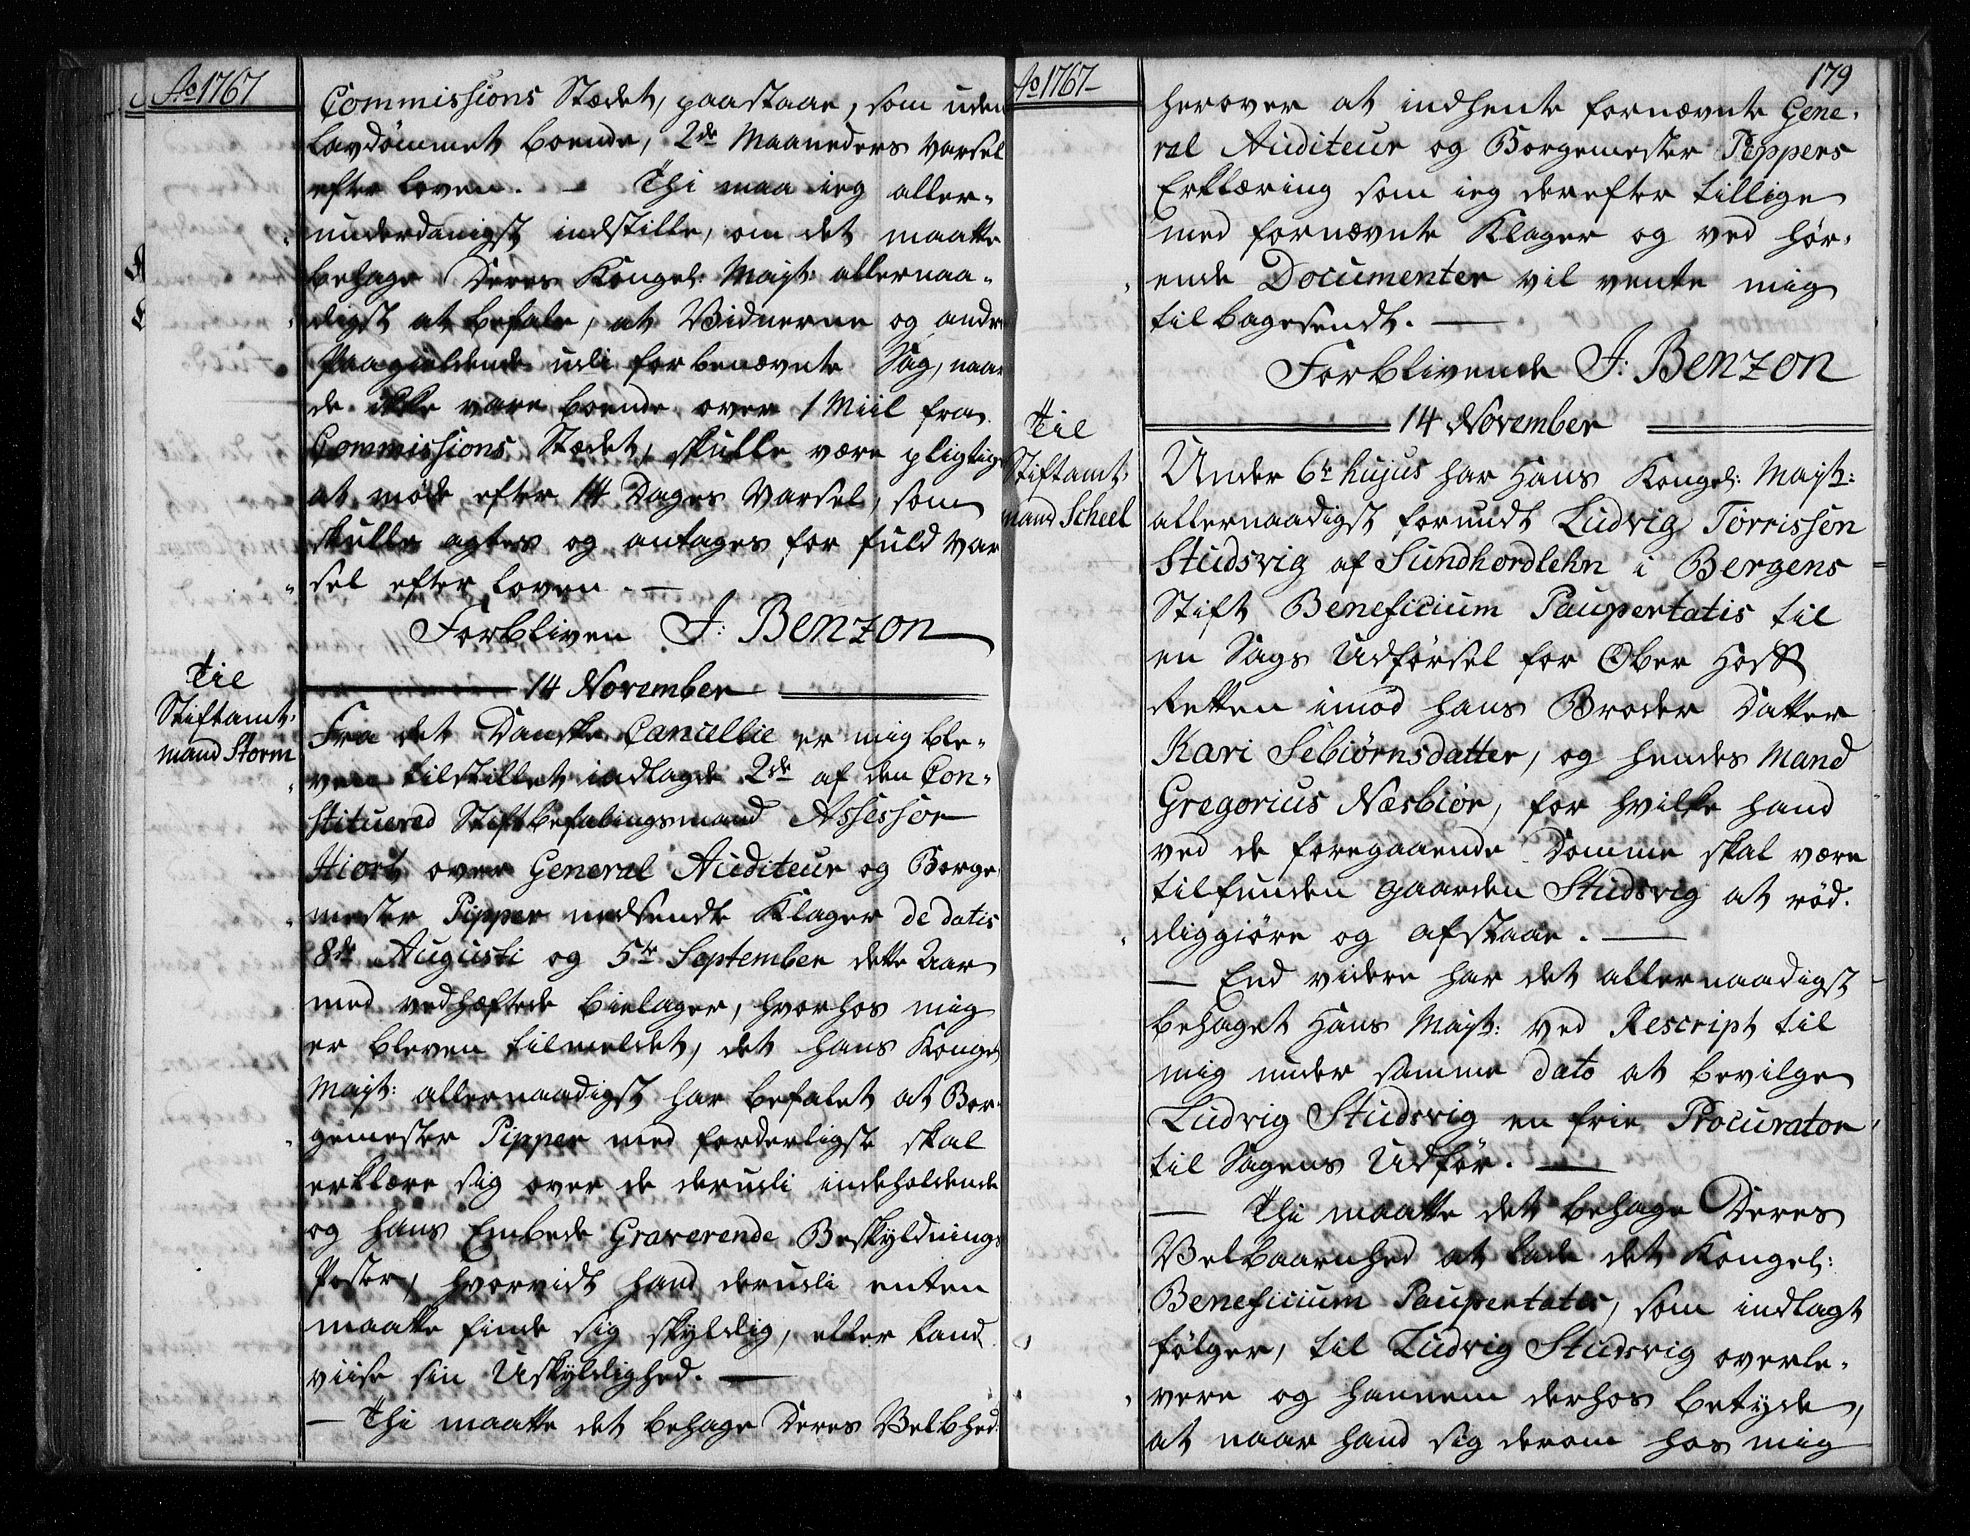 Ao 1767
Commissions Stædet, paastaae, som uden
Lavdømmet boende, 2de Maaneders Varsel
efter Loven. — Thi maa ieg aller-
underdanigst indstille, om det maatte
behage Deres Kongel: Mayt: allernaa-
digst at befale, at Vidnerne og andre
Paagieldende udi forbenævnte Sag, naar
de ikke vare boende over 1 Miil fra
Commissions Stædet, skulle være pligtige
at møde efter 14 Dages Varsel, som
skulle agtes og antages for fuld Var
sel efter Loven. —
Forbliven J: Benzon
14 November
Til
Stiftamt-
mand Storm
Fra det Danske Cancellie er mig ble-
ven tilstillet indlagde 2de af den Con-
stituered Stiftbefalingsmand Assessor
Hiort over General Auditeur og Borge-
mester Pipper nedsendte Klager de datis
8de Augusti og 5te September dette Aar
med vedhæftede bielager, hvorhos mig
er bleven tilmeldet, det Hans Kongel
Mayt: allernaadigst har befalet at Bor-
gemester Pipper med forderligst skal
erklære sig over de derudi indeholdende
og hans Embede Graverende Beskyldnings
Poster, hvorvidt hand derudi enten
maatte finde sig skyldig, eller kand
viise sin Uskyldighed. —
— Thi maatte det behage Deres Velbhed:
Ao 1767
179
herover at indhente fornævnte Gene-
ral Auditeur og Borgemester Pippers
Erklæring som ieg derefter tillige
med fornævnte Klager og ved hør-
ende Documenter vil vente mig
tilbagesendt. —
Forblivende J: Benzon
14 November
Til
Stiftamt-
mand Scheel
Under 6te hujus har Hans Kongel: Mayt:
allernaadigst forundt Ludvig Tørrissen
Studsvig af Sundhordlehn i Bergens
Stift Beneficium Paupertatis til
en Sags Udførsel for Ober Hoff
Retten imod hans Broder Datter
Kari Sebiørnsdatter, og hendes Mand
Gregorius Næsbiør, for hvilke hand
ved de foregaaende Domme skal være
tilfunden Gaarden Studsvig at rød-
diggiøre og afstaae. —
— End videre har det allernaadigst
behaget Hans Mayt: ved Rescript til
mig under samme dato at bevilge
Ludvig Studsvig en frie Procurator
til Sagens Udfør. —
— Thi maatte det behage Deres
Velbaarnhed at lade det Kongel:
Beneficium Paupertatis, som indlagt
følger, til Ludvig Studsvig overle-
vere og hannem derhos betyde,
at naar hand sig derom hos mig